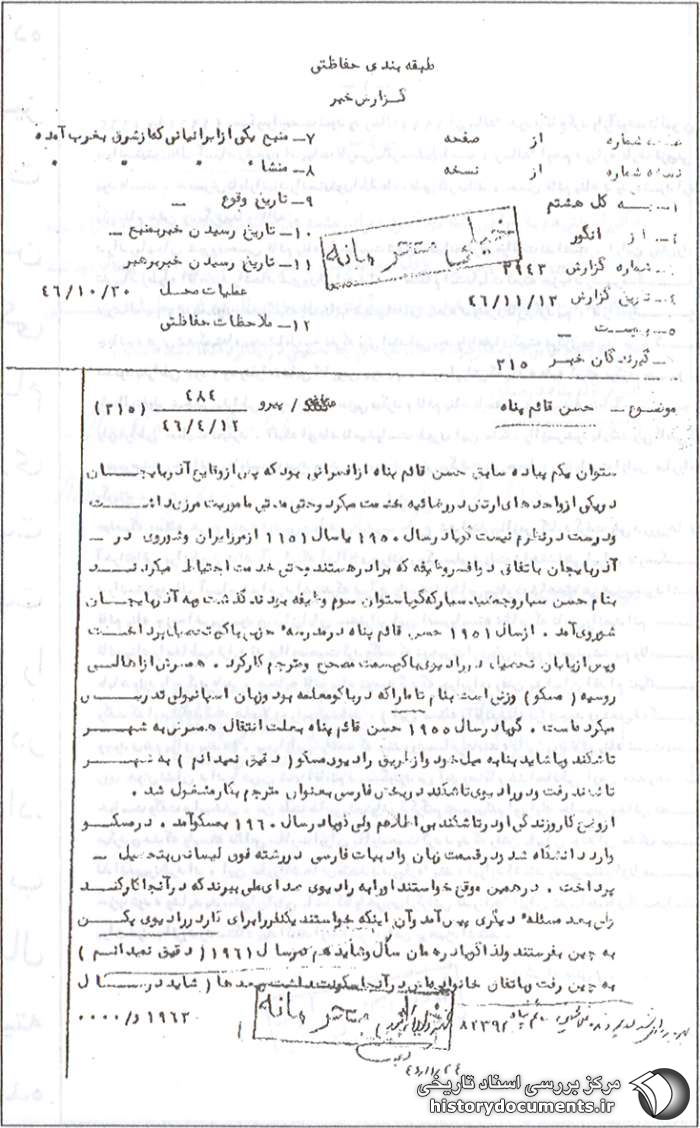 طبقه بندی حفاظتی
گزارش خبر
نسخه شماره از صفحه
۷ـ منبع یکی از ایرانیانی که از شرق بغرب آمده
نسخه شماره از نسخه
۸ـ منشاء " " " "
۱ـ به کل هشتم
۹ـ تاریخ وقوع ـ
۲ـ از انگور
۱۰ـ تاریخ رسیدن خبر بمنبع ـ
۳ـ شماره گزارش ۳۹۴۳
۱۱ـ تاریخ رسیدن خبر برهبر
۴ـ تاریخ گزارش ۴۶/۱۱/۱۲
عملیات محل ۴۶/۱۰/۳۰
۵ـ پیوست ـ
۱۲ـ ملاحظات حفاظتی
گیرندگان خبر ۳۱۵
خیلی محرمانه
موضوع ـ حسن قائم پناه
پیرو ۴۸۴ (۳۱۵) ۴۶/۴/۱۲
ستوان یکم پیاده سابق حسن قائم پناه از افسرانی بود که پس از وقایع آذربایجان
در یکی از واحدهای ارتش در رضائیه خدمت میکرد و حتی مدتی مأموریت مرزی داشت
و درست در نظرم نیست گویا در سال ۱۹۵۰ یا سال ۱۱۵۱ از مرز ایران و شوروی در ـ
آذربایجان باتفاق دو افسر وظیفه که برادر هستند و حتی خدمت احتیاط میکردند
بنام حسن سیار و جمشید سیار که گویا ستوان سوم وظیفه بودند گذشت و به آذربایجان
شوروی آمد . از سال ۱۹۵۱ حسن قائم پناه در مدرسه حزبی باکو تحصیل پرداخت
و پس از پایان تحصیل در رادیو باکو بسمت مصحح و مترجم کار کرد . همسرش از اهالی
روسیه ( مسکو ) و زنی است بنام تامارا که در باکو معلمه بود و زبان اسپانیولی تدریس
میکرده است . گویا در سال ۱۹۵۵ حسن قائم پناه بعلت انتقال همسرش به شهر
تاشکند و یا شاید بنا به میل خود و از طریق رادیو مسکو ( دقیق نمیدانم ) به شهر
تاشکند رفت و در رادیوی تاشکند در بخش فارسی بعنوان مترجم بکار مشغول شد .
از وضع کار و زندگی او در تاشکند بی اطلاعم ولی گویا در سال ۱۹۶۰ بمسکو آمد . در مسکو
وارد دانشگاه شد و در قسمت زبان و ادبیات فارسی در رشته فوق لیسانس بتحصیل ـ
پرداخت . در همین موقع خواستند او را به رادیوی صدای ملی ببرند که در آنجا کار کند
ولی بعد مسئله دیگری پیش آمد و آن اینکه خواستند یکنفر را برای کار در رادیوی پکن
به چین بفرستند ولذا گویا در همان سال و شاید هم در سال ۱۹۶۱ ( دقیق نمیدانم )
به چین رفت و باتفاق خانواده اش در آنجا سکونت داشت و بعدها ( شاید در سال
۱۹۶۲ د/۰۰۰۰
خیلی محرمانه
۸۲۳۹۲
مرکز بررسی اسناد تاریخی
historydocuments.ir